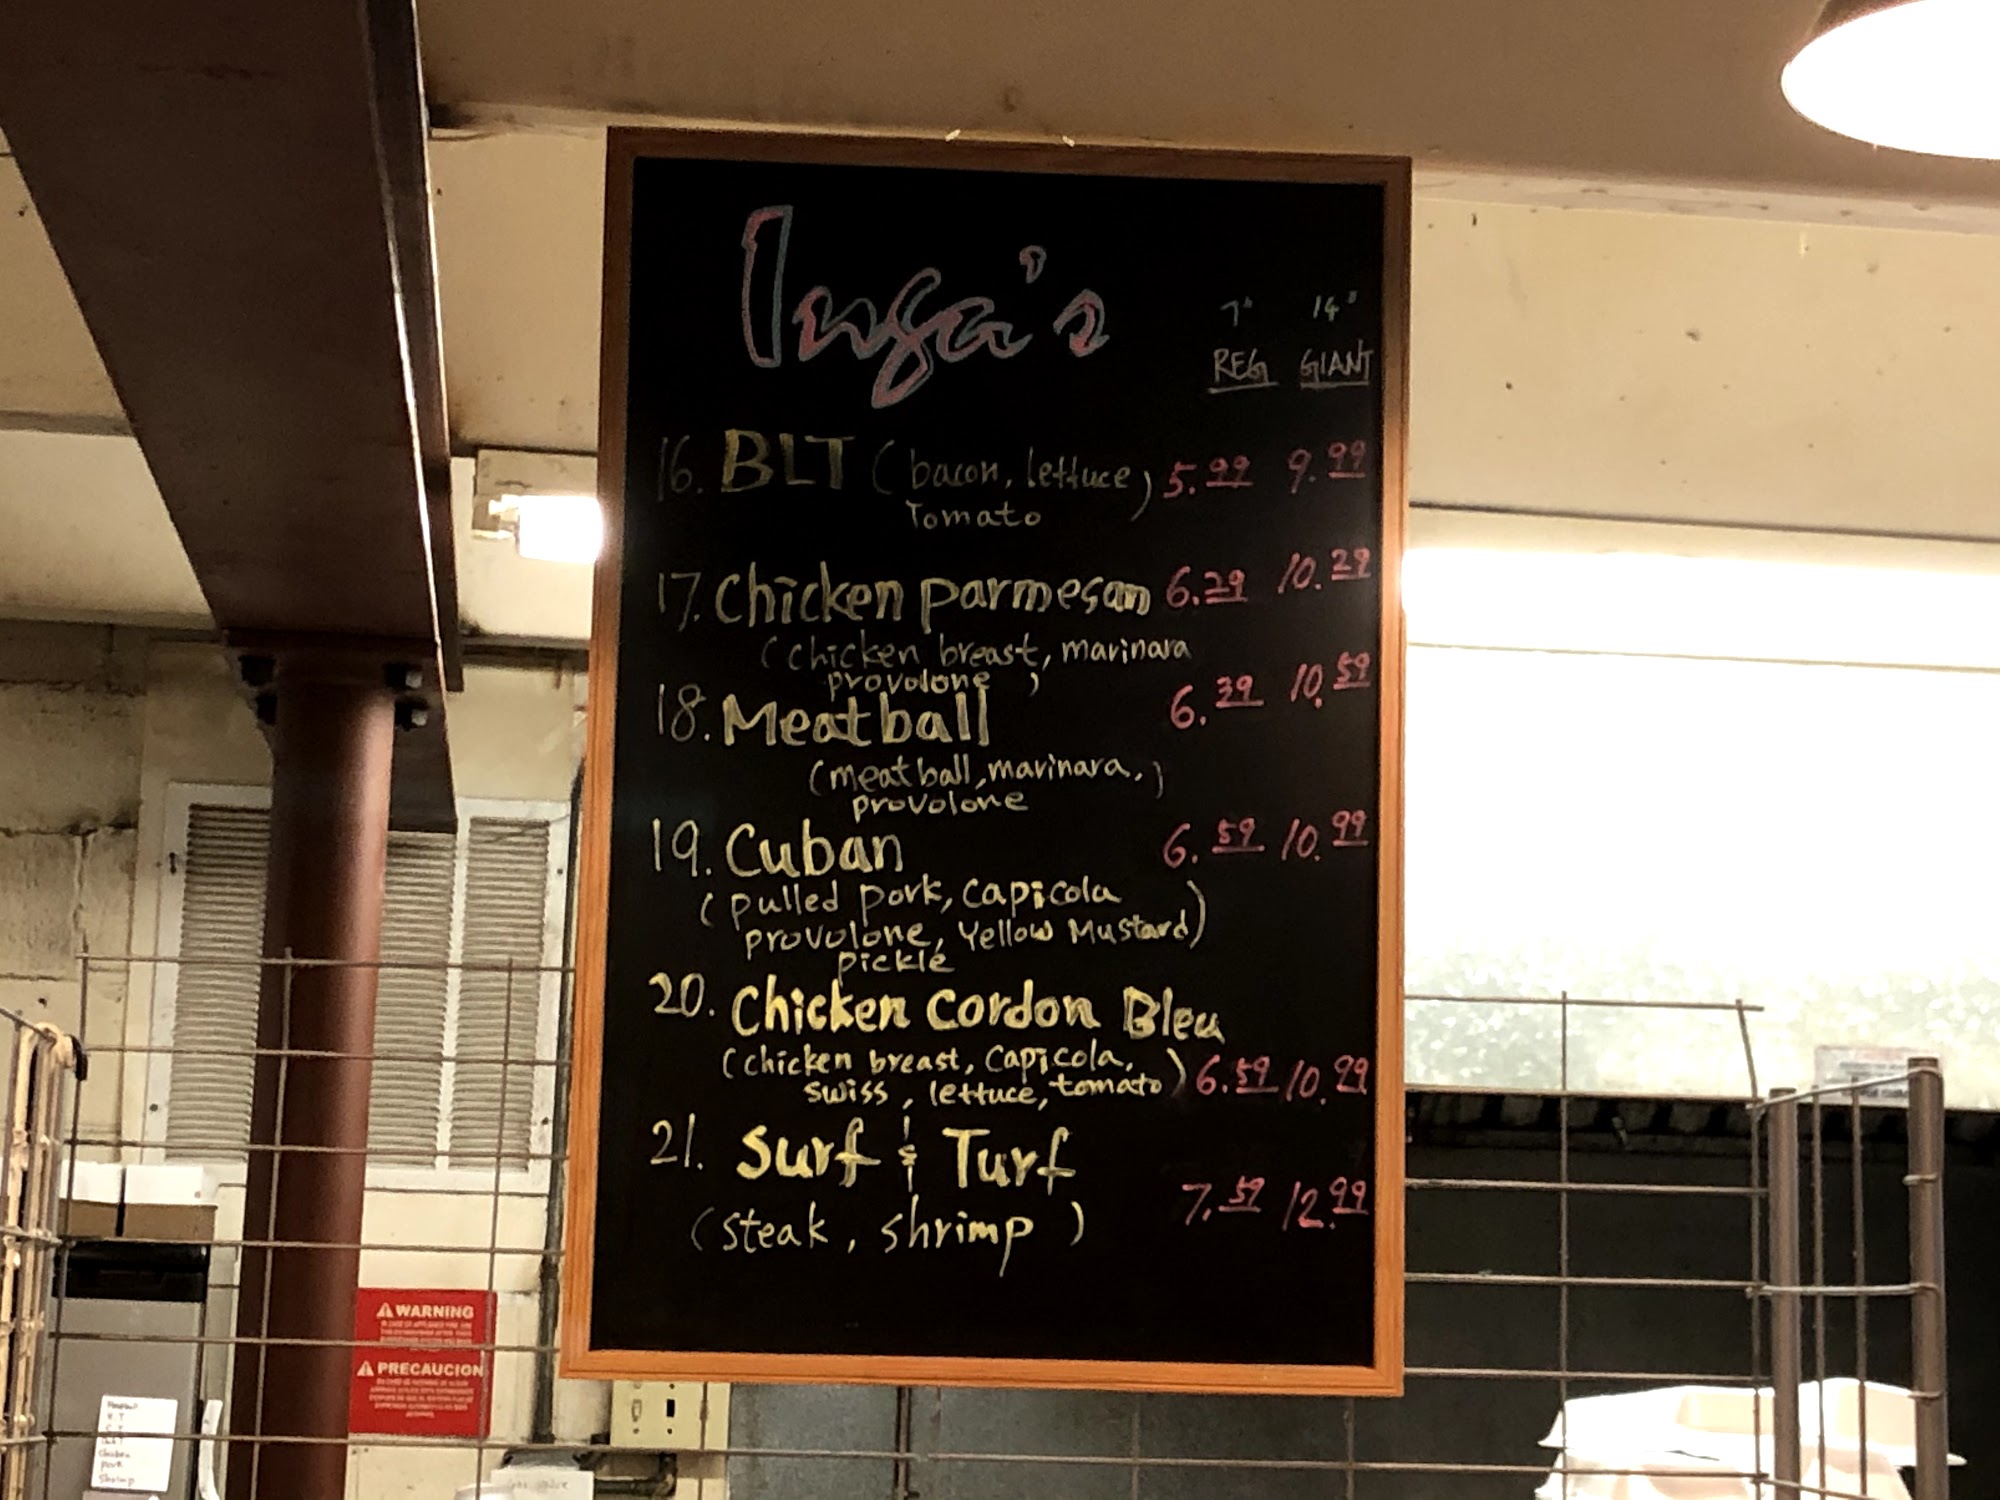 Inga's
7" 14"
REG GIANT
16. BLT (bacon, lettuce) 5.99 9.99
Tomato
17. Chicken parmesan 6.29 10.29
(chicken breast, marinara
provolone )
18. Meatball 6.39 10.59
(meatball, marinara, )
provolone
19. Cuban 6.59 10.99
(pulled pork, capicola
provolone, Yellow Mustard)
pickle
20. Chicken Cordon Bleu
(chicken breast, capicola,
swiss, lettuce, tomato) 6.59 10.99
21. Surf & Turf
(steak, shrimp) 7.59 12.99
WARNING
PRECAUCION
chicken
pork
shrimp